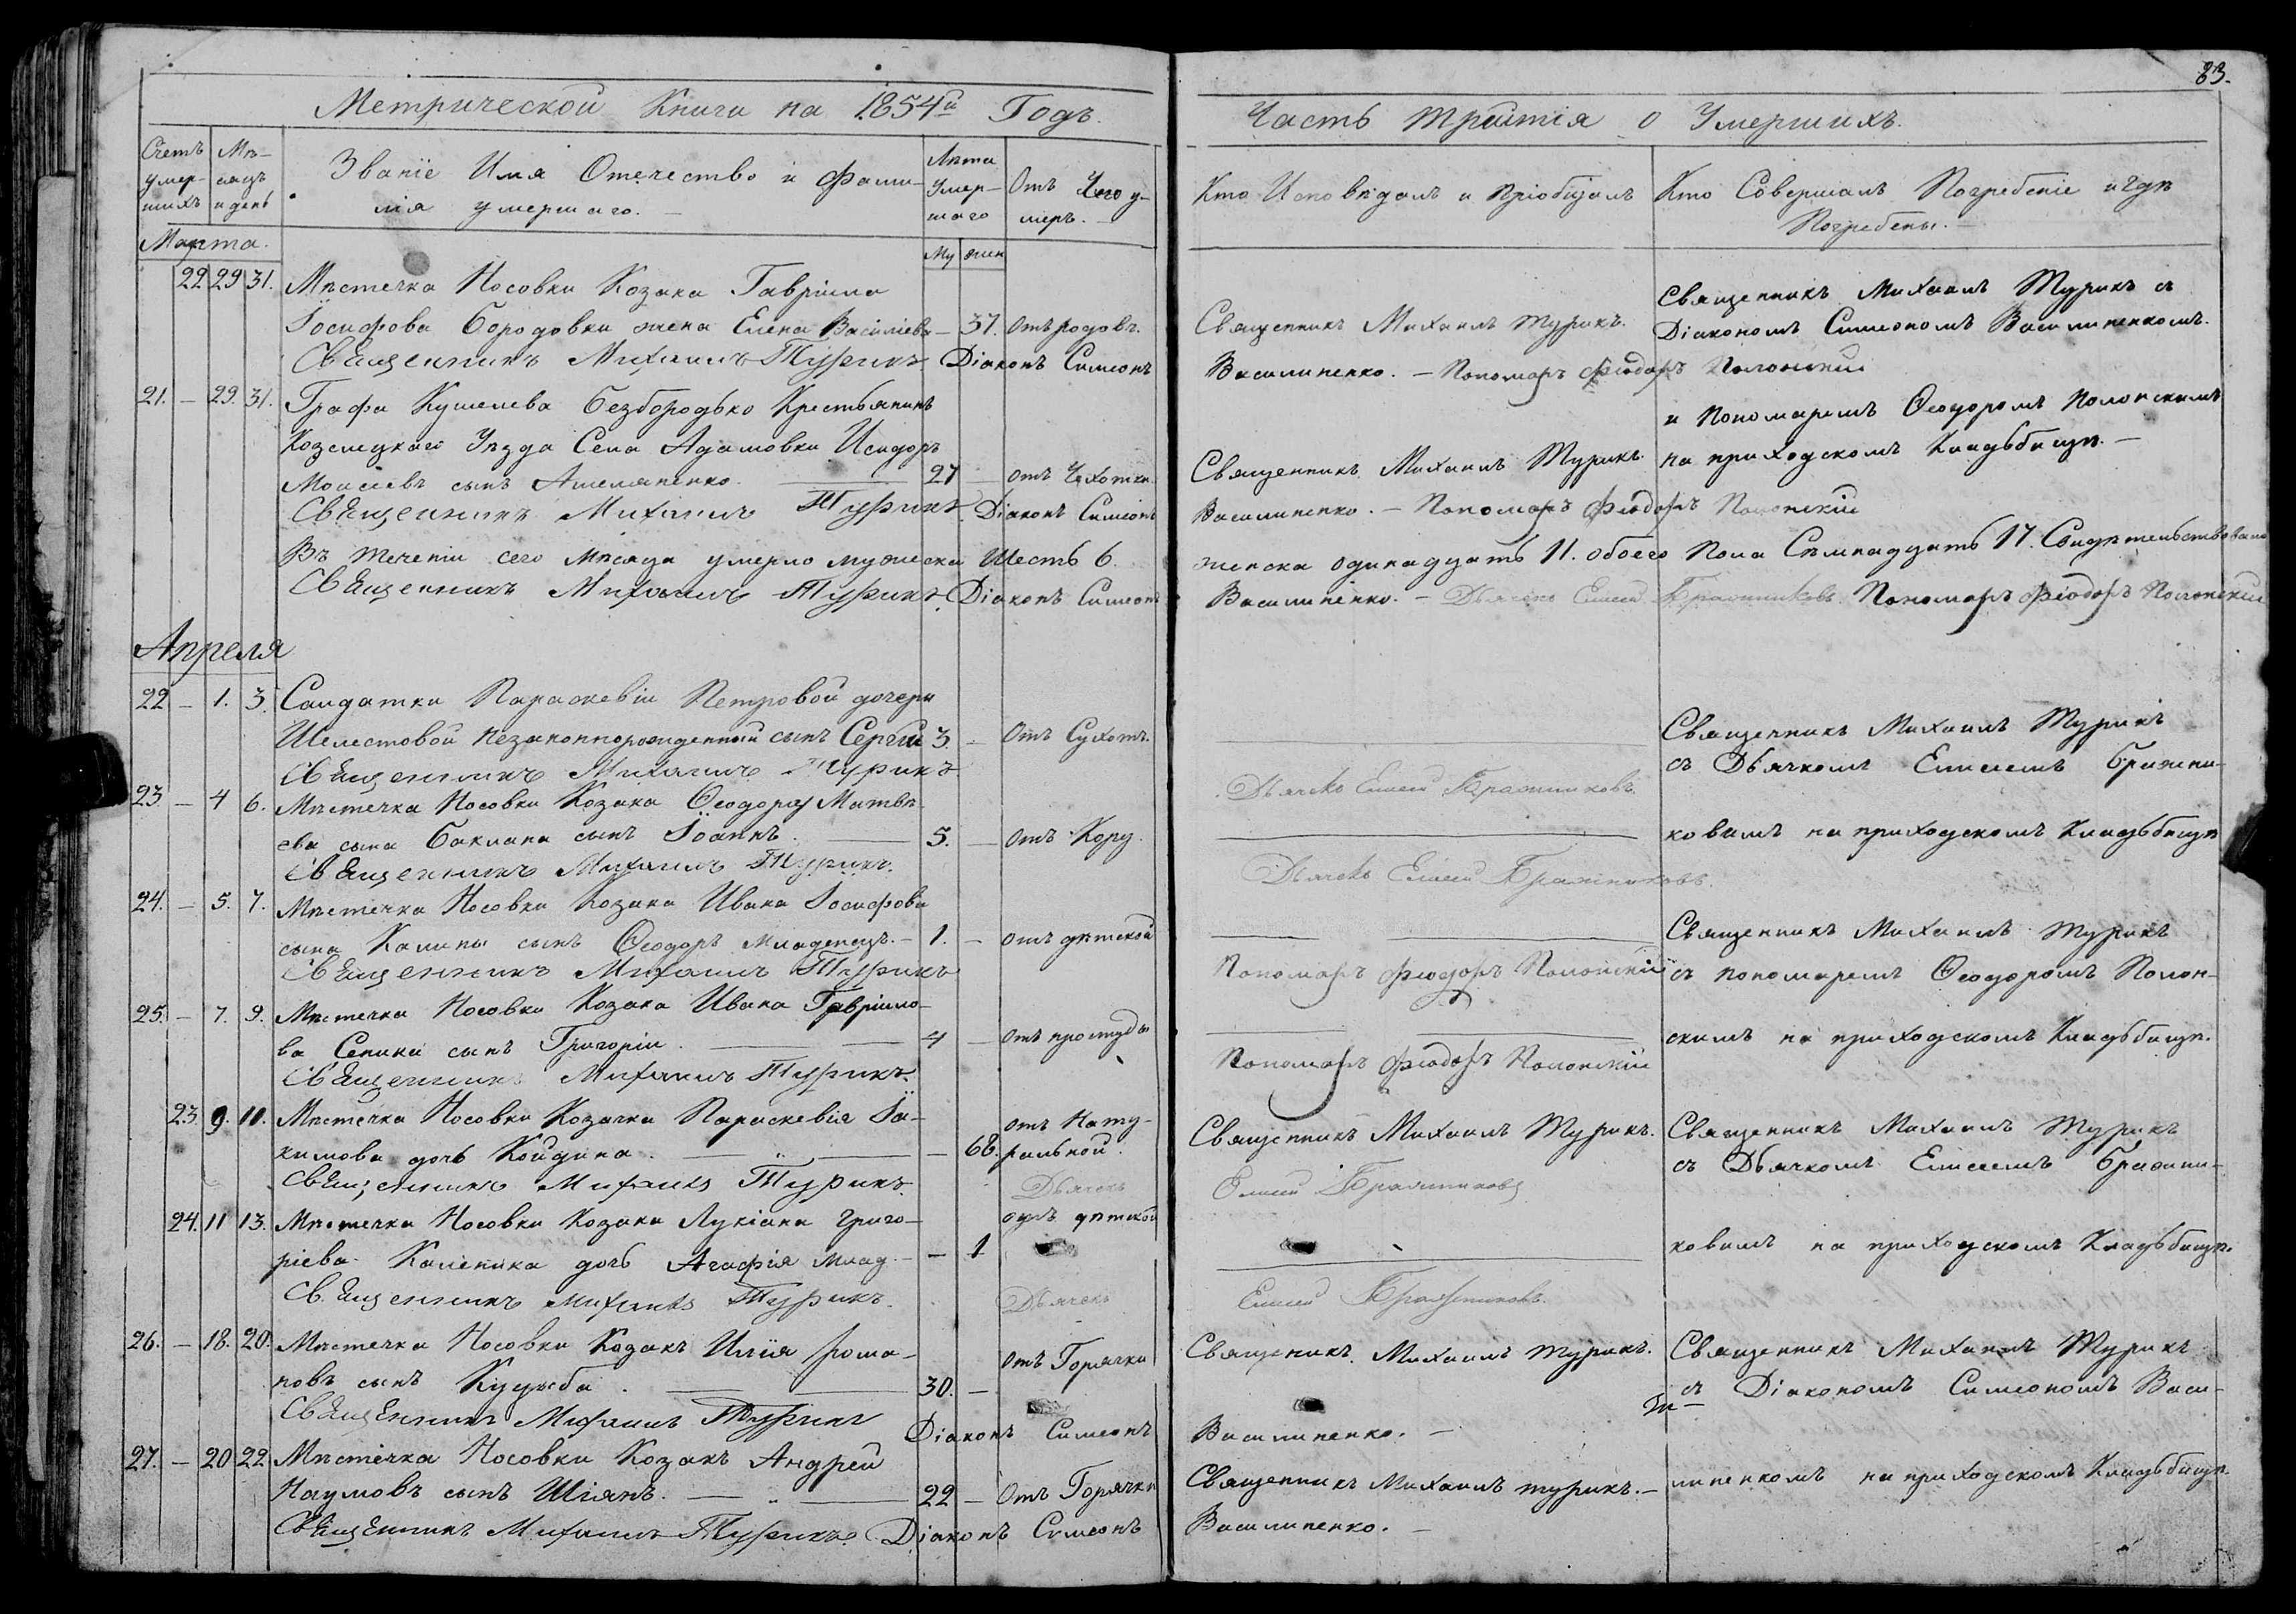 83.
Метрической Книги на 1854й Годъ.
Часть третія о Умершихъ.
Счетъ умер-шихъ
Мѣ-сяцъ и день
Званіе Имя Отечество и фами-
лія умершаго.
Лѣта Умер-шаго
Му жен
Отъ Чего у-
меръ.
Кто Исповѣдалъ и пріобщалъ
Кто Совершалъ Погребеніе и гдѣ
Погребены.
Марта.
22 29 31. Мѣстечка Носовки Козака Гавріила
Іосифова Бородовки жена Елена Васіліева — 37. Отъ родовъ.
Священникъ Михаилъ Турикъ.
Священникъ Михаилъ Турикъ съ
Діакономъ Симеономъ Василипенкомъ.
Священникъ Михаилъ Турикъ Діаконъ Симеонъ Василипенко. — Пономаръ Феодоръ Полонскій
21. — 29. 31. Графа Кушелева Безбородько Крестьянинъ
и Пономаремъ Ѳеодоромъ Полонскимъ
Козелецкаго Уѣзда Села Адамовки Исидоръ
на приходскомъ Кладьбищѣ. —
Моисеевъ сынъ Амеляненко. 27 — отъ Чахотки
Священникъ Михаилъ Турикъ.
Священникъ Михаилъ Турикъ. Діаконъ Симеонъ Василипенко. — Пономаръ Феодоръ Полонскій
Въ теченіи сего мѣсяца умерло мужеска Шесть 6. женска одинадцать 11. обоего Пола Сѣмнадцать 17. Свидѣтельствовали
Священникъ Михаилъ Турикъ. Діаконъ Симеонъ Василипенко. — Дьячекъ Елисей Бражниковъ Пономаръ Феодоръ Полонскій
Апреля
22 — 1. 3. Салдатки Параскевіи Петровой дочери
Шелестовой незаконнорожденный сынъ Сергій 3. — Отъ Сухотъ.
Священникъ Михаилъ Турикъ
съ Дьячкомъ Елисеемъ Бражни-
Священникъ Михаилъ Турикъ Дьячекъ Елисей Бражниковъ.
23 — 4 6. Мѣстечка Носовки Козака Ѳеодора Матвѣ-
ева сына Баклана сынъ Іоаннъ. 5. — Отъ Кору.
ковымъ на приходскомъ Кладьбищѣ
Священникъ Михаилъ Турикъ. Дьячекъ Елисей Бражниковъ.
24. — 5. 7. Мѣстечка Носовки Козака Ивана Іосифова
сына Калины сынъ Ѳеодоръ младенецъ. — 1. — отъ дѣтской
Священникъ Михаилъ Турикъ
Священникъ Михаилъ Турикъ Пономаръ Феодоръ Полонскій
съ пономаремъ Ѳеодоромъ Полон-
25. — 7. 9. Мѣстечка Носовки Козака Ивана Гавріило-
ва Сепики сынъ Григорій. 4 — Отъ простуды
скимъ на приходскомъ Кладьбищѣ.
Священникъ Михаилъ Турикъ. Пономаръ Феодоръ Полонскій
23. 9. 11. Мѣстечка Носовки Козачка Параскевія Іа-
кимова дочь Койдина. — 68. отъ Нату-
ральной.
Священникъ Михаилъ Турикъ.
Священникъ Михаилъ Турикъ
съ Дьячкомъ Елисеемъ Бражни-
Священникъ Михаилъ Турикъ. Дьячекъ Елисей Бражниковъ
24. 11 13. Мѣстечка Носовки Козака Лукіана Григо-
ріева Каленика дочь Агафія млад. — 1 отъ дѣтской
ковымъ на приходскомъ Кладьбищѣ.
Священникъ Михаилъ Турикъ. Дьячекъ Елисей Бражниковъ.
26. — 18. 20. Мѣстечка Носовки Козакъ Илія Рома-
новъ сынъ 30. — Отъ Горячки
Священникъ. Михаилъ Турикъ.
Священникъ Михаилъ Турикъ
съ Діакономъ Симеономъ Васи-
Священникъ Михаилъ Турикъ Діаконъ Симеонъ Василипенко. —
27. — 20 22 Мѣстечка Носовки Козакъ Андрей
Наумовъ сынъ Шіянъ. 22 — Отъ Горячки
Священникъ Михаилъ Турикъ. —
липенкомъ на приходскомъ Кладьбищѣ.
Священникъ Михаилъ Турикъ. Діаконъ Симеонъ Василипенко. —